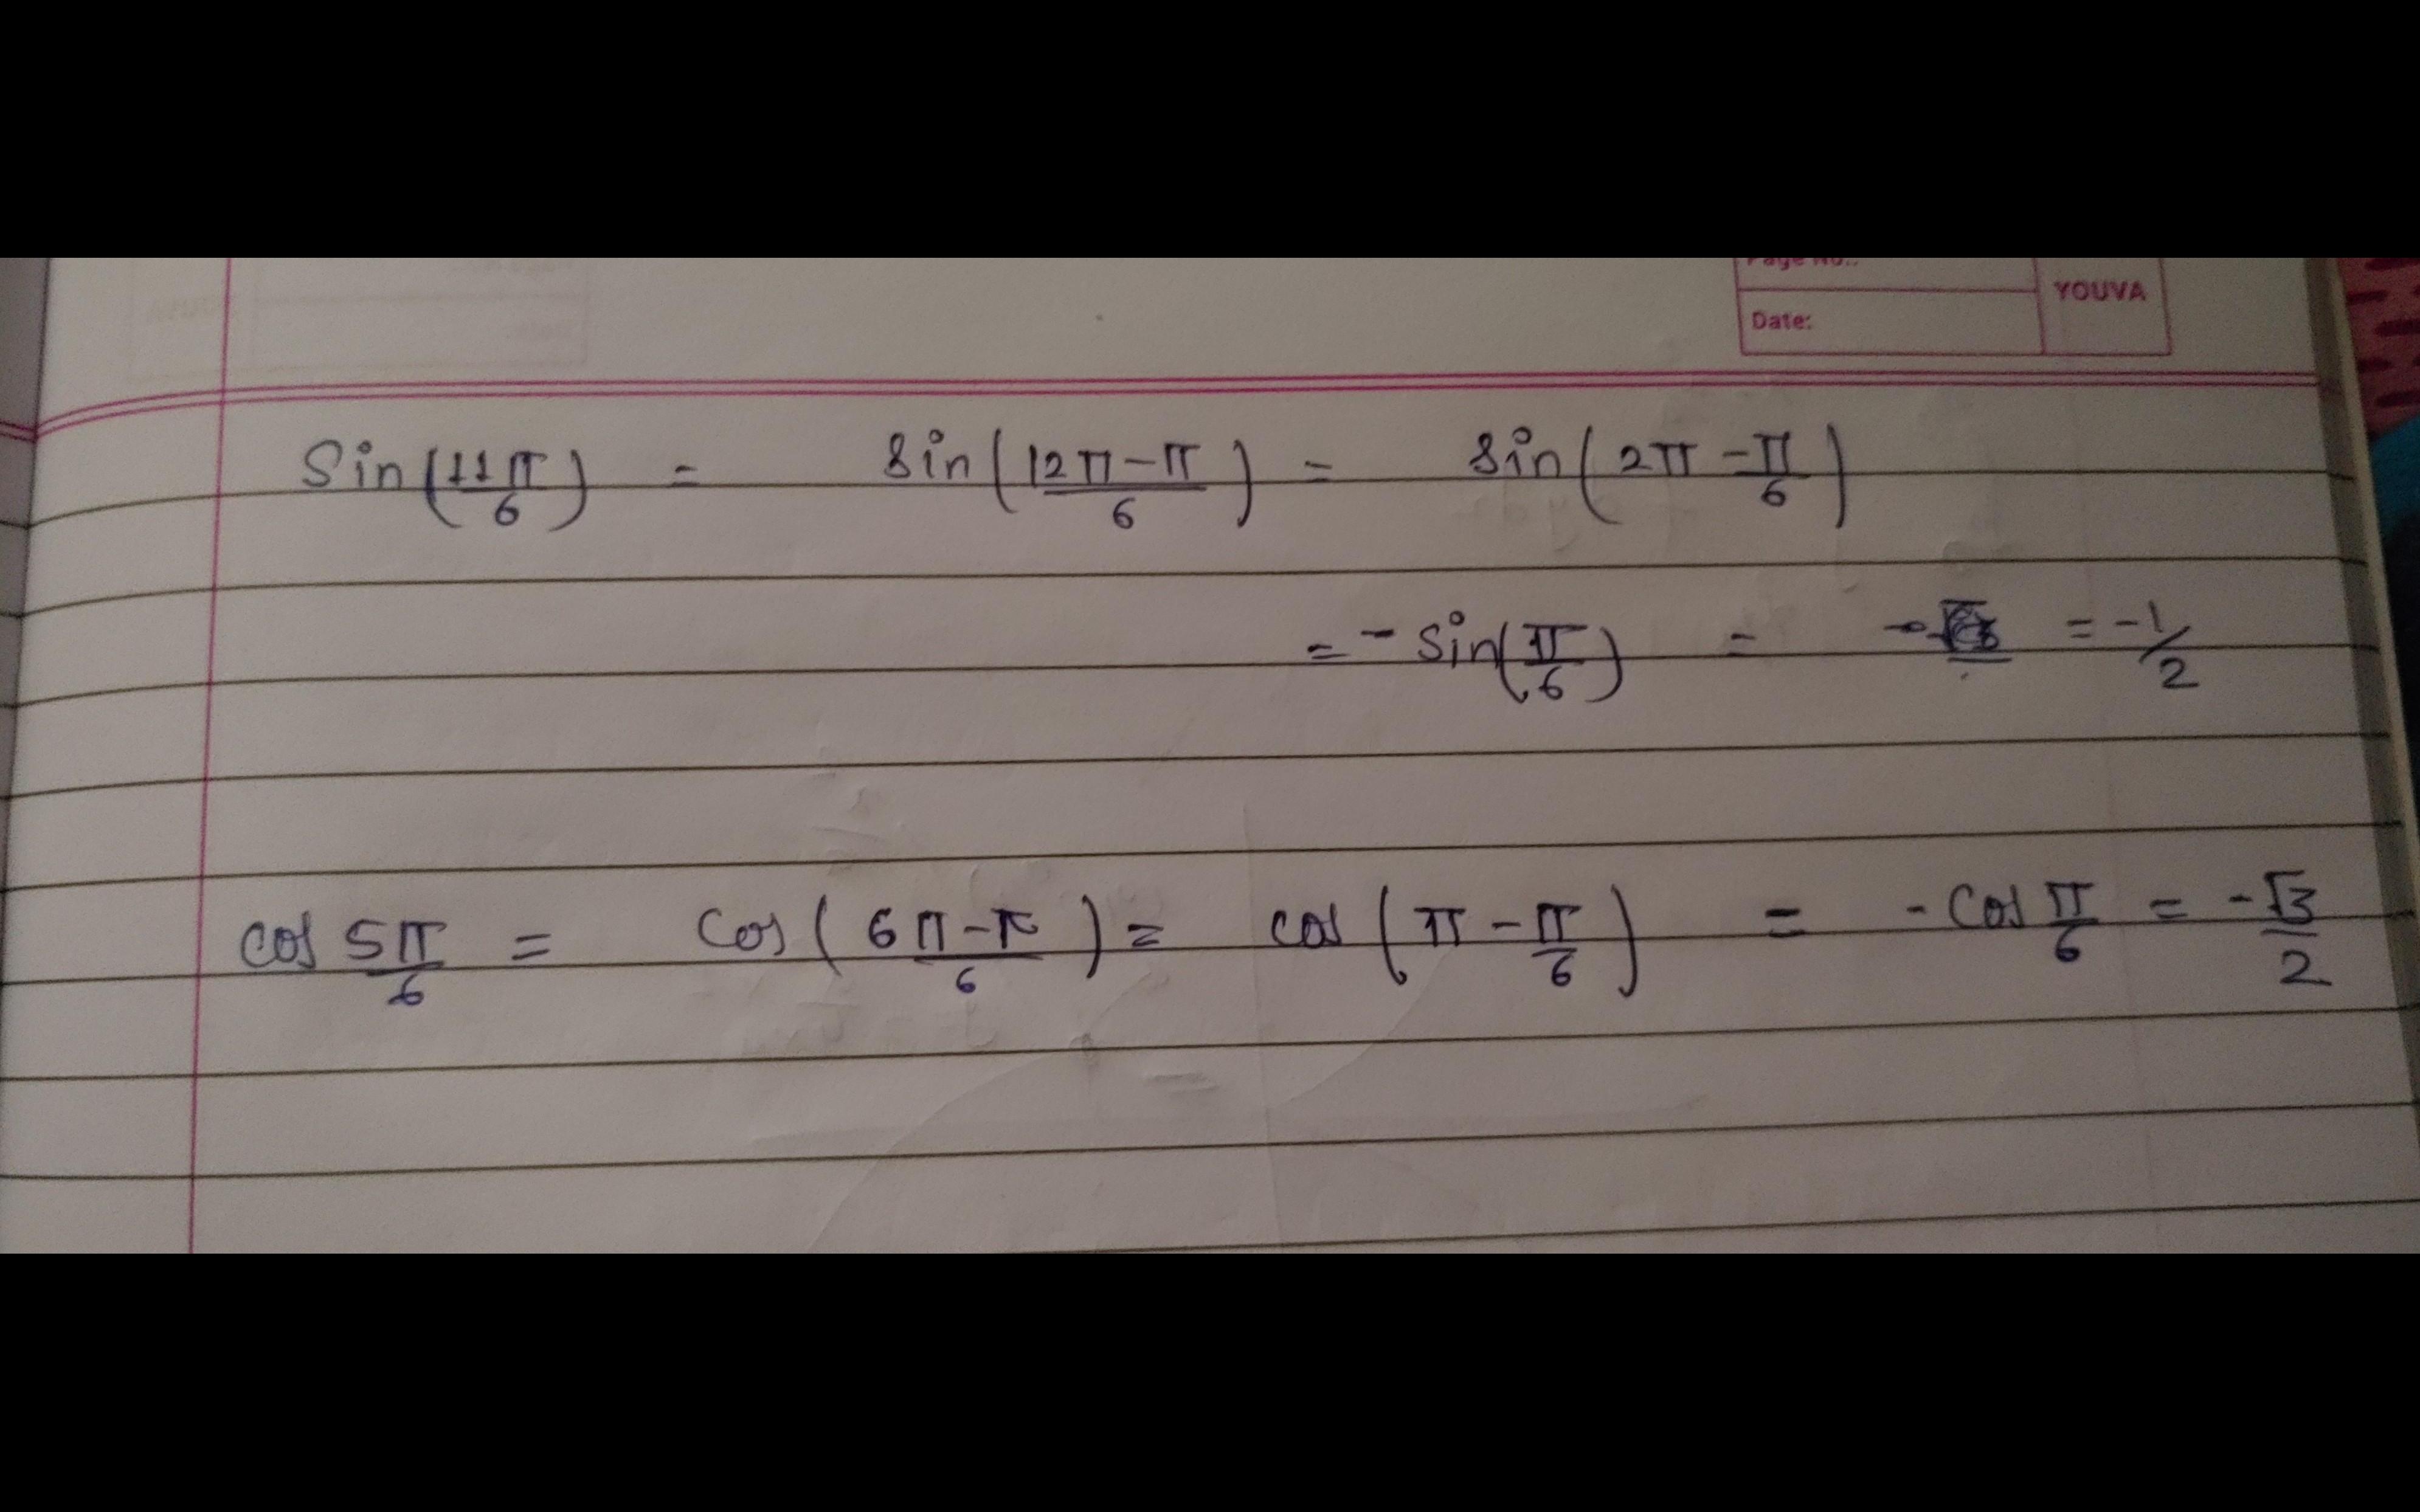 Page No.:
Date:
YOUVA
Sin(11π/6) = Sin(12π-π/6) = Sin(2π-π/6)
= - Sin(π/6) = - = -1/2
Cos 5π/6 = Cos(6π-π/6) = Cos(π-π/6) = - Cos π/6 = -√3/2